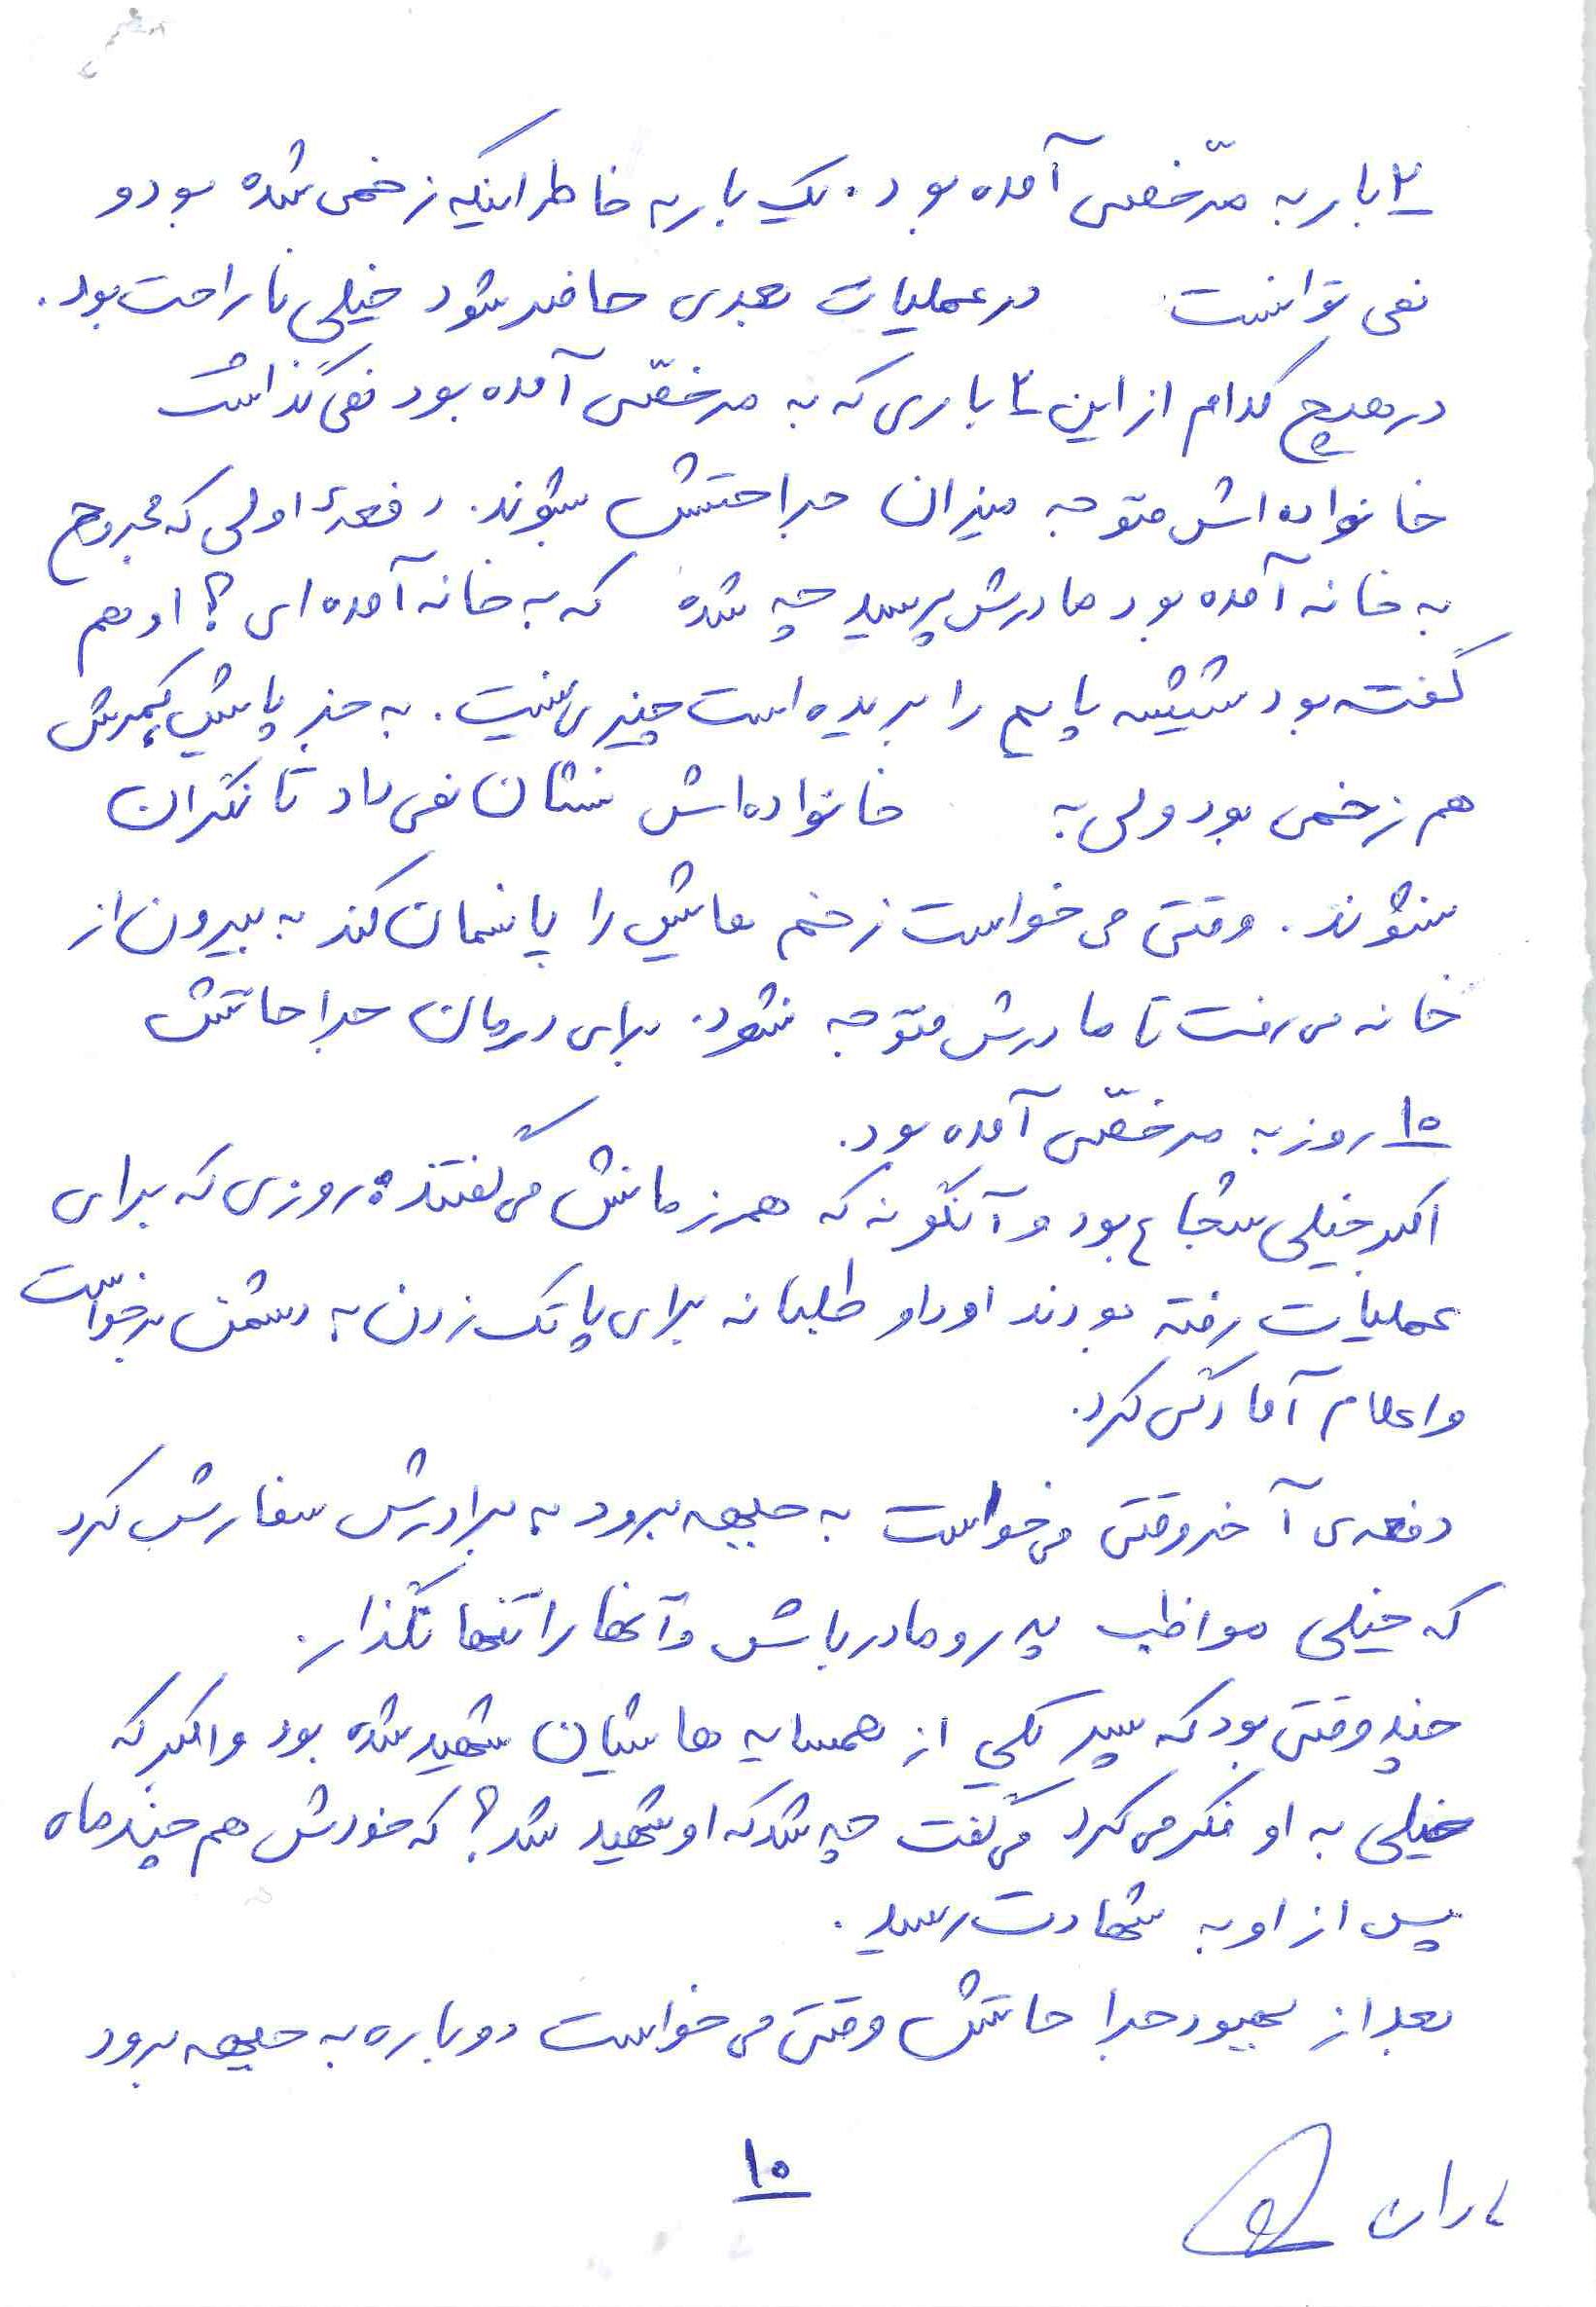 ۲ بار به مرّخصی آمده بود. یک بار به خاطر اینکه زخمی شده بود و
نمی توانست در عملیات بعدی حاضر شود خیلی ناراحت بود.
در هیچ کدام از این ۲ باری که به مرخصّی آمده بود نمی گذاشت
خانواده اش متوجه میزان جراحتش شوند. دفعهٔ اولی که مجروح
به خانه آمده بود مادرش پرسید چه شده که به خانه آمده ای؟ او هم
گفته بود شیشه پایم را بریده است چیزی نیست. به جز پایش کمرش
هم زخمی بود ولی به خانواده اش نشان نمی داد تا نگران
نشوند. وقتی می خواست زخم هایش را پانسمان کند به بیرون از
خانه می رفت تا مادرش متوجه نشود. برای درمان جراحاتش
۱۵ روز به مرخصّی آمده بود.
اکبر خیلی شجاع بود و آنگونه که همرزمانش می گفتند روزی که برای
عملیات رفته بودند او داوطلبانه برای پاتک زدن به دشمن برخواست
و اعلام آمادگی کرد.
دفعه ی آخر وقتی می خواست به جبهه برود به برادرش سفارش کرد
که خیلی مواظب پدر و مادر باش و آنها را تنها نگذار.
چند وقتی بود که پسر یکی از همسایه هاشان شهید شده بود و اکبر که
خیلی به او فکر می کرد می گفت چه شد که او شهید شد؟ که خودش هم چند ماه
پس از او به شهادت رسید.
بعد از بهبود جراحاتش وقتی می خواست دوباره به جبهه برود
۱۰